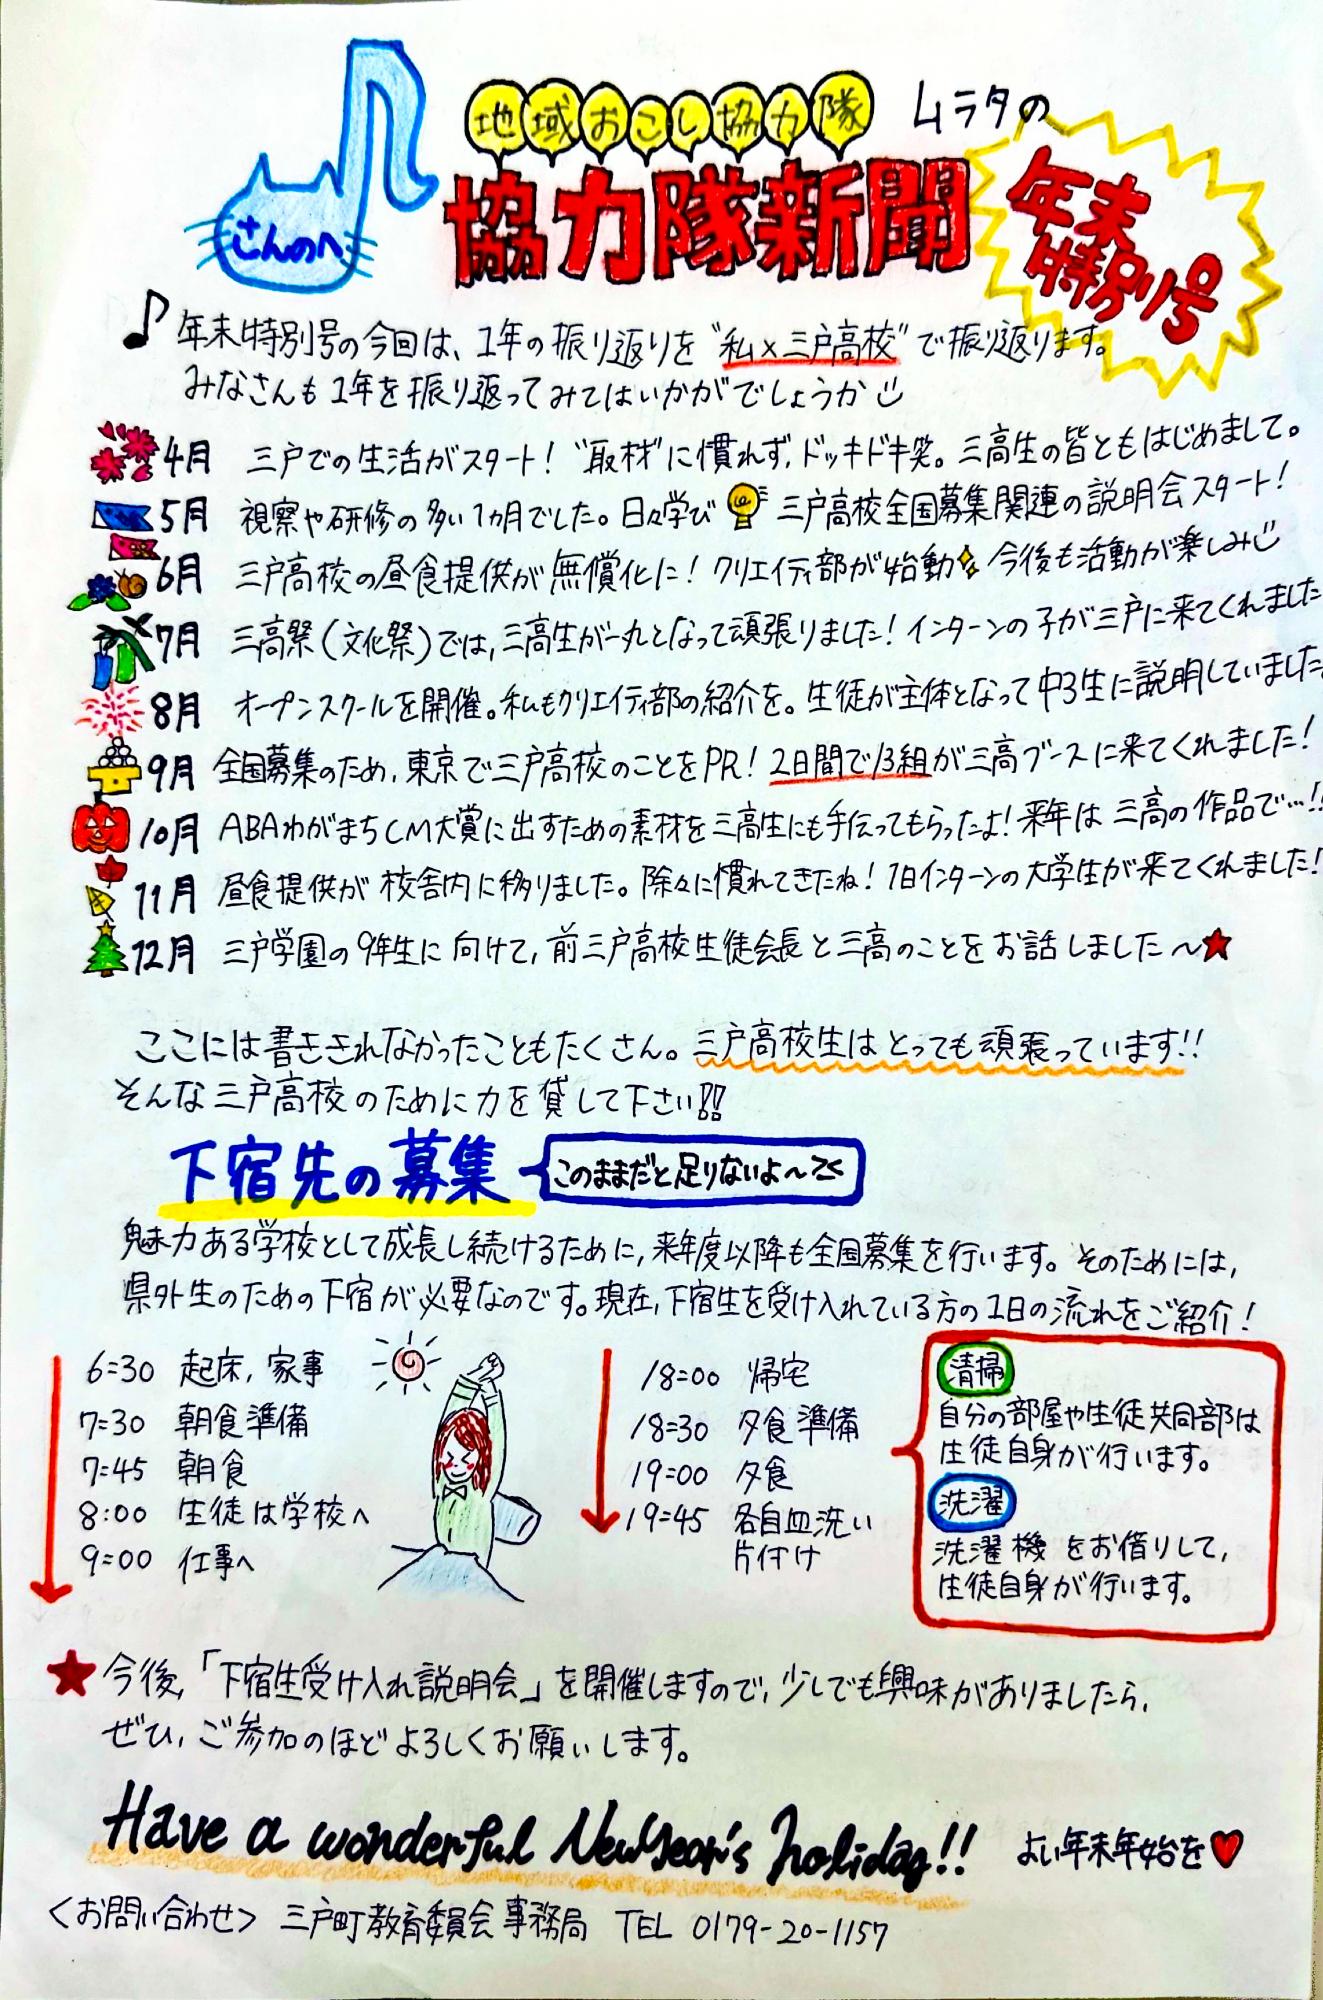 地域おこし協力隊 ムラタの
さんのへ
協力隊新聞
年末
特別号
年末特別号の今回は、1年の振り返りを"私×三戸高校"で振り返ります。
みなさんも1年を振り返ってみてはいかがでしょうか
4月 三戸での生活がスタート！"取材"に慣れず、ドッキドキ笑。三高生の皆ともはじめまして。
5月 視察や研修の多い1ヵ月でした。日々学び 三戸高校全国募集関連の説明会スタート！
6月 三戸高校の昼食提供が無償化に！クリエイティ部が始動 今後も活動が楽しみ
7月 三高祭(文化祭)では、三高生が一丸となって頑張りました！インターンの子が三戸に来てくれました
8月 オープンスクールを開催。私もクリエイティ部の紹介を。生徒が主体となって中3生に説明していました。
9月 全国募集のため、東京で三戸高校のことをPR！2日間で13組が三高ブースに来てくれました！
10月 ABAわがまちCM大賞に出すための素材を三高生にも手伝ってもらったよ！来年は三高の作品で…!!
11月 昼食提供が校舎内に移りました。除々に慣れてきたね！1日インターンの大学生が来てくれました！
12月 三戸学園の9年生に向けて、前三戸高校生徒会長と三高のことをお話しました〜★
ここには書ききれなかったこともたくさん。三戸高校生はとっても頑張っています!!
そんな三戸高校のために力を貸して下さい!!
下宿先の募集 このままだと足りないよ〜><
魅力ある学校として成長し続けるために、来年度以降も全国募集を行います。そのためには、
県外生のための下宿が必要なのです。現在、下宿生を受け入れている方の1日の流れをご紹介！
6:30 起床、家事
7:30 朝食準備
7:45 朝食
8:00 生徒は学校へ
9:00 仕事へ
18:00 帰宅
18:30 夕食準備
19:00 夕食
19:45 各自皿洗い
片付け
清掃
自分の部屋や生徒共同部は
生徒自身が行います。
洗濯
洗濯機をお借りして、
生徒自身が行います。
★今後、「下宿生受け入れ説明会」を開催しますので、少しでも興味がありましたら、
ぜひ、ご参加のほどよろしくお願いします。
Have a wonderful NewYear's holiday!! よい年末年始を♥
<お問い合わせ> 三戸町教育委員会事務局 TEL 0179-20-1157